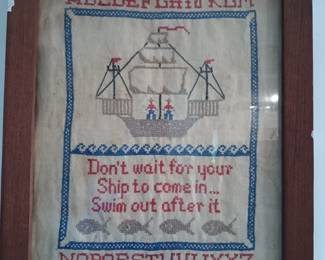 ABCDEFGHIJKLM
Don't wait for your
Ship to come in...
Swim out after it
NOPQRSTUVWXYZ